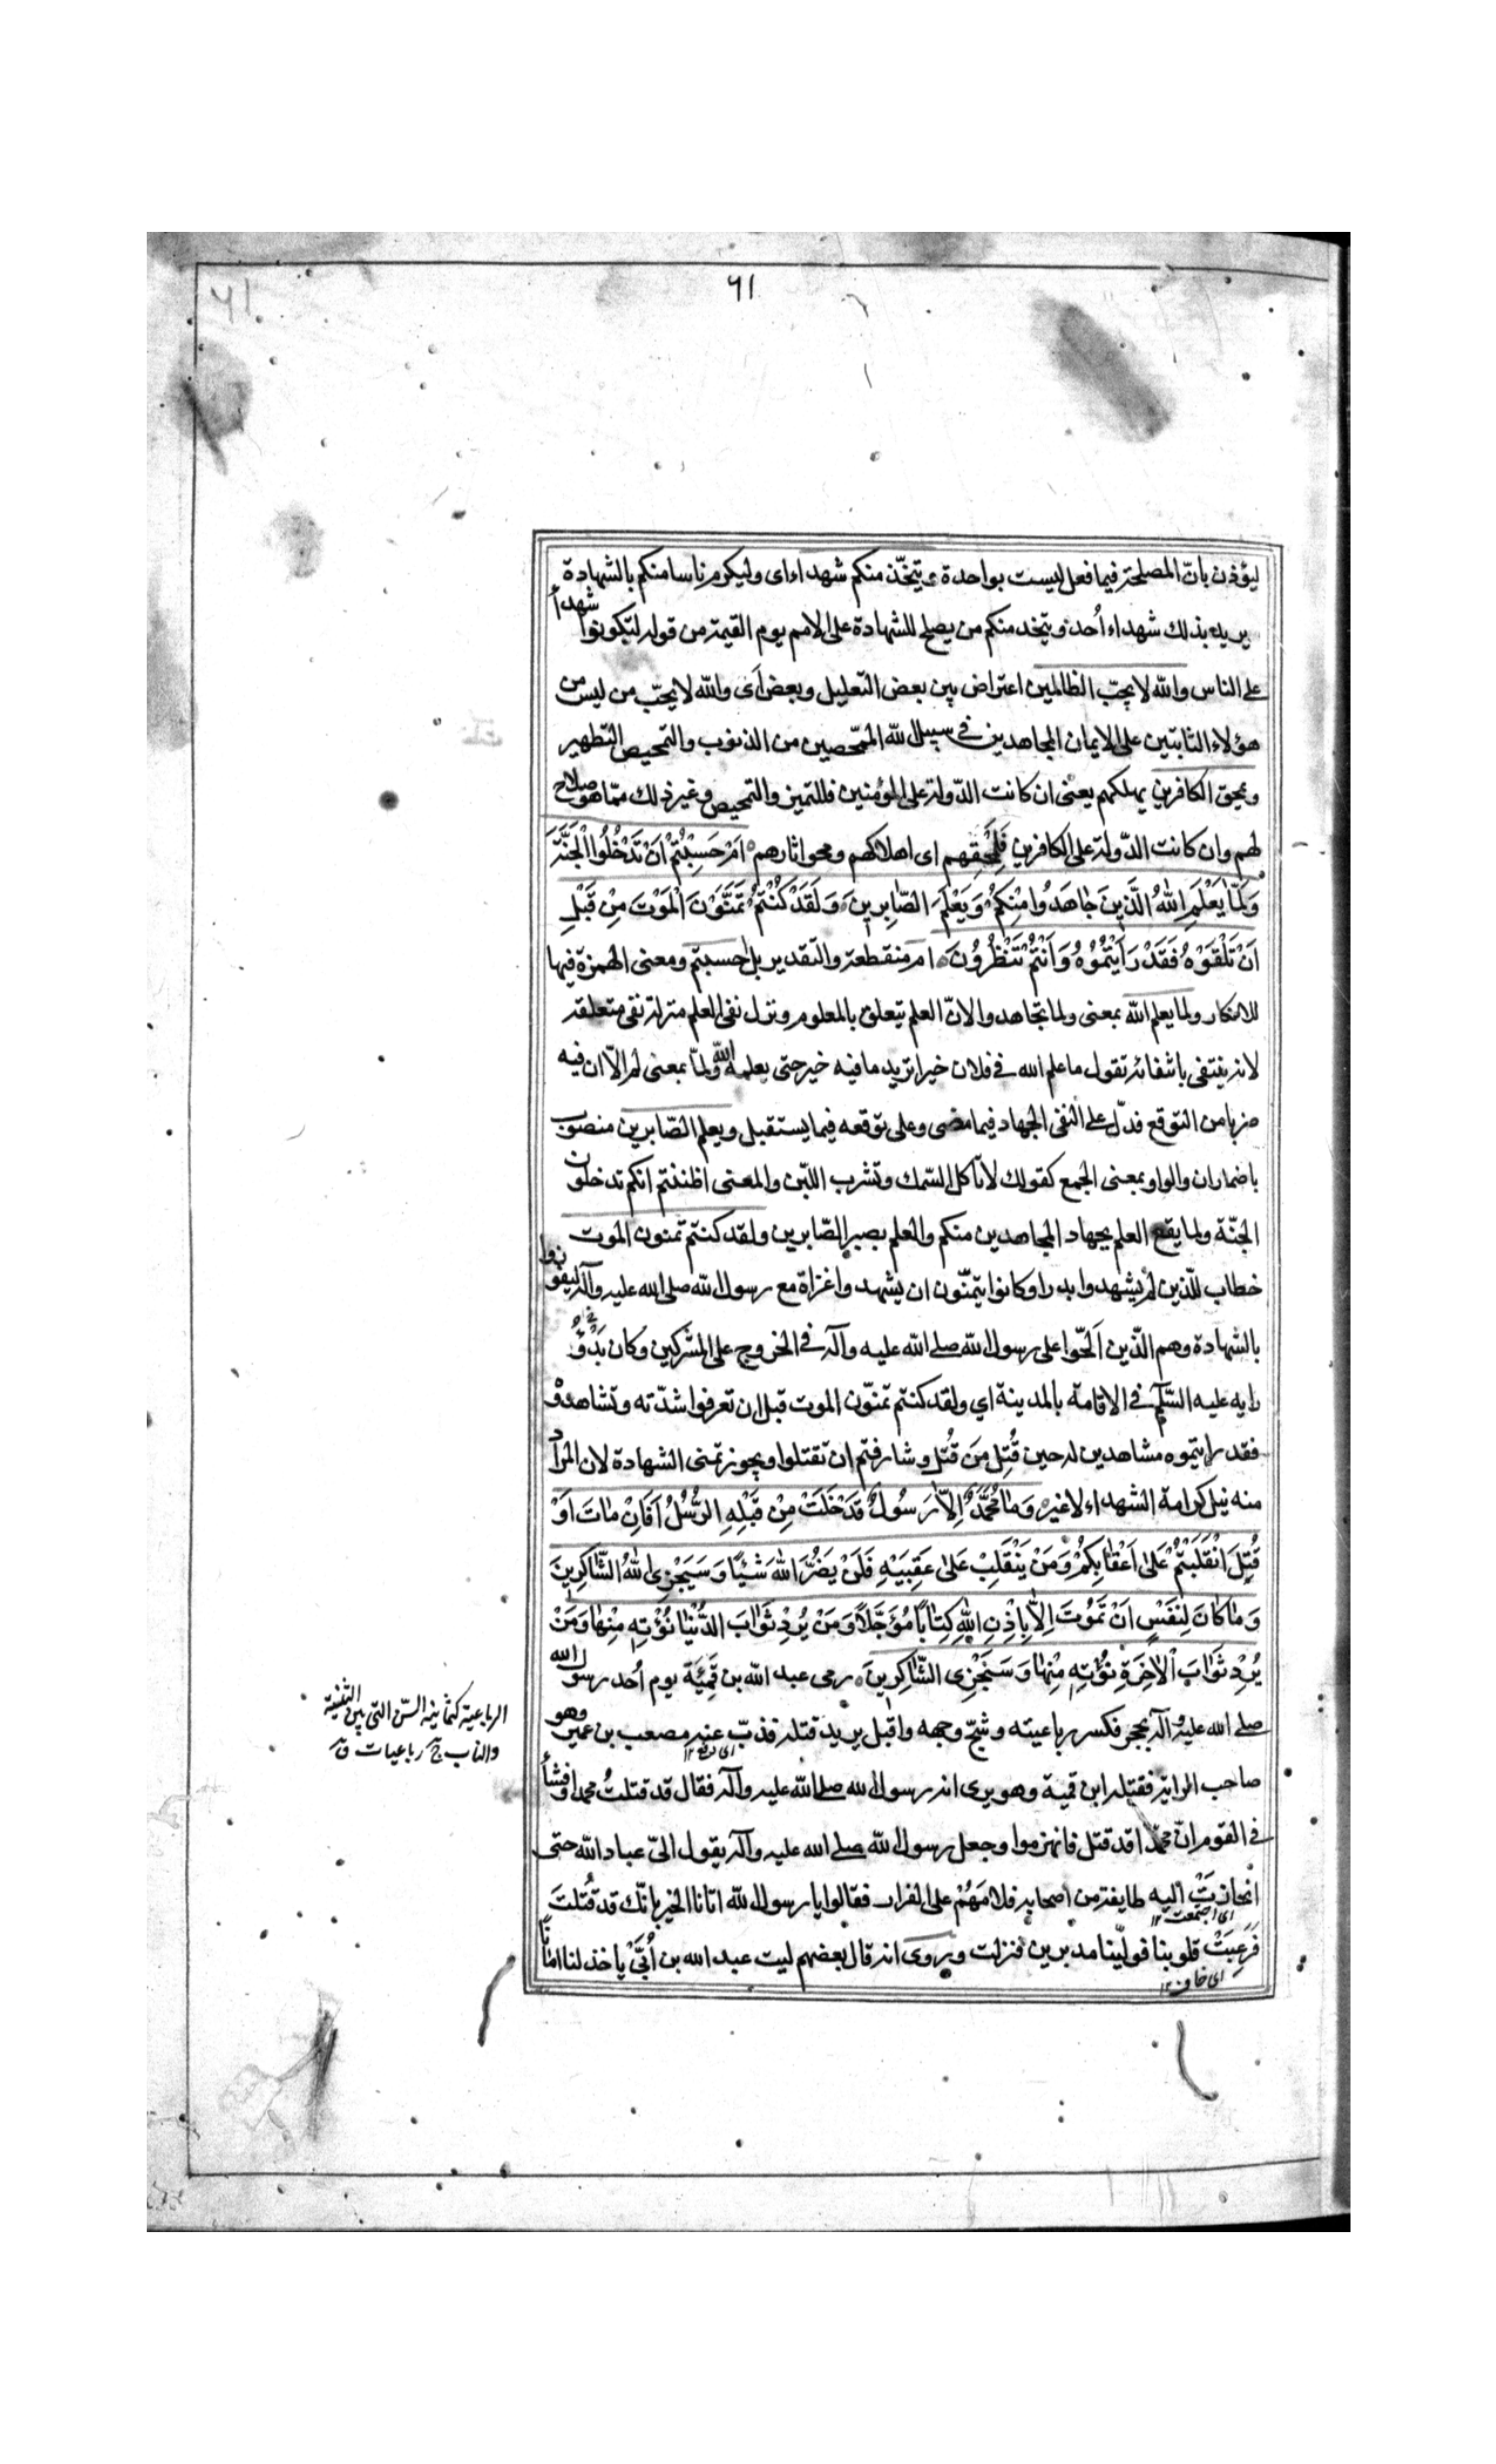 ٦١
ليؤذن بانّ المصلحة فيما فعل ليست بواحدة ويتّخذ منكم شهداء اى وليكرم ناسا منكم بالشهادة
يريد بذلك شهداء اُحد ويتخذ منكم من يصلح للشهادة على الامم يوم القيمة من قوله لتكونوا شهداء
على الناس والله لا يحبّ الظالمين اعتراض بين بعض التعليل وبعض اَى والله لا يحبّ من ليس من
هؤلاء الثابتين على الايمان المجاهدين فى سبيل الله الممحّصين من الذنوب والتمحيص التطهير
ويمحق الكافرين يهلكهم يعنى ان كانت الدّولة على المؤمنين فللتميز والتمحيص وغير ذلك ممّا هو صلاح
لهم وان كانت الدّولة على الكافرين فَلِمَحْقِهم اى اهلاكهم ومحو اثارهم اَمْ حَسِبْتُمْ اَنْ تَدْخُلُوا الْجَنَّةَ
وَلَمّا يَعْلَمِ اللهُ الَّذينَ جٰاهَدُوا مِنْكُمْ وَيَعْلَمَ الصّٰابِرينَ وَلَقَدْ كُنْتُمْ تَمَنَّوْنَ الْمَوْتَ مِنْ قَبْلِ
اَنْ تَلْقَوْهُ فَقَدْ رَاَيْتُمُوهُ وَاَنْتُمْ تَنْظُرُونَ ام منقطعة والتقدير بل احسبتم ومعنى الهمزة فيها
للانكار ولما يعلم الله بمعنى ولما تجاهدوا لانّ العلم يتعلق بالمعلوم ونزل نفى العلم منزلة نفى متعلقه
لانه ينتفى بانتفائه تقول ما علم الله فى فلان خيرا تريد ما فيه خير حتى يعلمه الله ولمّا بمعنى لم الّا ان فيه
ضربا من التوقع فدلّ على النفى الجهاد فيما مضى وعلى توقعه فيما يستقبل ويعلم الصّابرين منصوب
باضمار ان والواو بمعنى الجمع كقولك لا تاكل السّمك وتشرب اللبن والمعنى اظننتم انكم تدخلون
الجنّة ولما يقع العلم بجهاد المجاهدين منكم والعلم بصبر الصّابرين ولقد كنتم تمنون الموت
خطاب للّذين لم يشهدوا بدرا وكانوا يتمنّون ان يشهدوا غزاة مع رسول الله صلى الله عليه وآله ليفوزوا
بالشهادة وهم الّذين اَلَحّوا على رسول الله صلى الله عليه وآله فى الخروج على المشركين وكان
رايه عليه السّلم فى الاقامة بالمدينة اي ولقد كنتم تمنّون الموت قبل ان تعرفوا شدّته وتشاهدوه
فقد رايتموه مشاهدين له حين قُتِل مَن قُتل وشارفتم ان تقتلوا ويجوز تمنى الشهادة لان المراد
منه نيل كرامة الشهداء لا غيره وَمٰا مُحَمَّدٌ اِلّٰا رَسُولٌ قَدْ خَلَتْ مِنْ قَبْلِهِ الرُّسُلُ اَفَاِنْ مٰاتَ اَوْ
قُتِلَ انْقَلَبْتُمْ عَلىٰ اَعْقٰابِكُمْ وَمَنْ يَنْقَلِبْ عَلىٰ عَقِبَيْهِ فَلَنْ يَضُرَّ اللهَ شَيْئًا وَسَيَجْزِى اللهُ الشّٰاكِرينَ
وَمٰا كٰانَ لِنَفْسٍ اَنْ تَمُوتَ اِلّٰا بِاِذْنِ اللهِ كِتٰابًا مُؤَجَّلًا وَمَنْ يُرِدْ ثَوٰابَ الدُّنْيٰا نُؤْتِهِ مِنْهٰا وَمَنْ
يُرِدْ ثَوٰابَ الْاٰخِرَةِ نُؤْتِهِ مِنْهٰا وَسَنَجْزِى الشّٰاكِرينَ رمى عبد الله بن قَمِئَة يوم اُحد رسول الله
صلى الله عليه وآله بحجر فكسر رباعيته وشجّ وجهه واقبل يريد قتله فذبّ عنه مصعب بن عمير وهو
اى دفع ١٢
صاحب الراية فقتله ابن قمية وهو يرى انه رسول الله صلى الله عليه وآله فقال قد قتلتُ محمدا وفشا
فى القوم انّ محمّدا قد قتل فانهزموا وجعل رسول الله صلى الله عليه وآله يقول الىّ عباد الله حتى
انحازتْ اليه طايفة من اصحابه فلامَهُمْ على الفرار فقالوا يا رسول الله اتانا الخبر بانّك قد قُتلتَ
اى اجتمعت ١٢
فَرَعِبَتْ قلوبنا فولّينا مدبرين فنزلت ويروى انه قال بعضهم ليت عبد الله بن اُبَىّ ياخذ لنا امانًا
اى خاف ١٢
الرباعية كثمانية السّن التى بين الثنية
والناب ج رباعيات ق